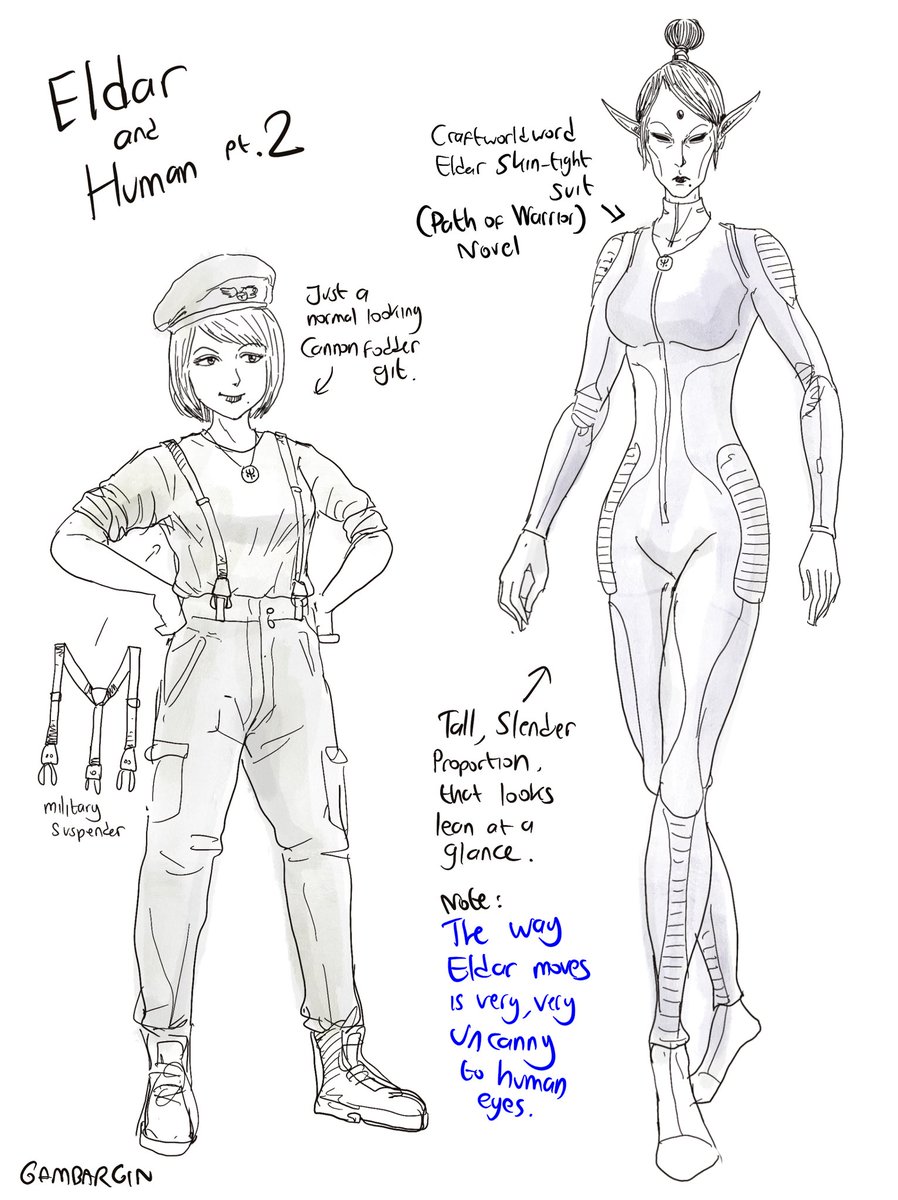 Eldar
and
Human pt.2
Craftworldword
Eldar Skin-tight
suit
(Path of Warrior)
Novel
Just a
normal looking
Cannon fodder
git.
military
Suspender
Tall, Slender
Proportion,
that looks
lean at a
glance.
Note:
The way
Eldar moves
is very, very
uncanny
to human
eyes.
GAMBARGIN